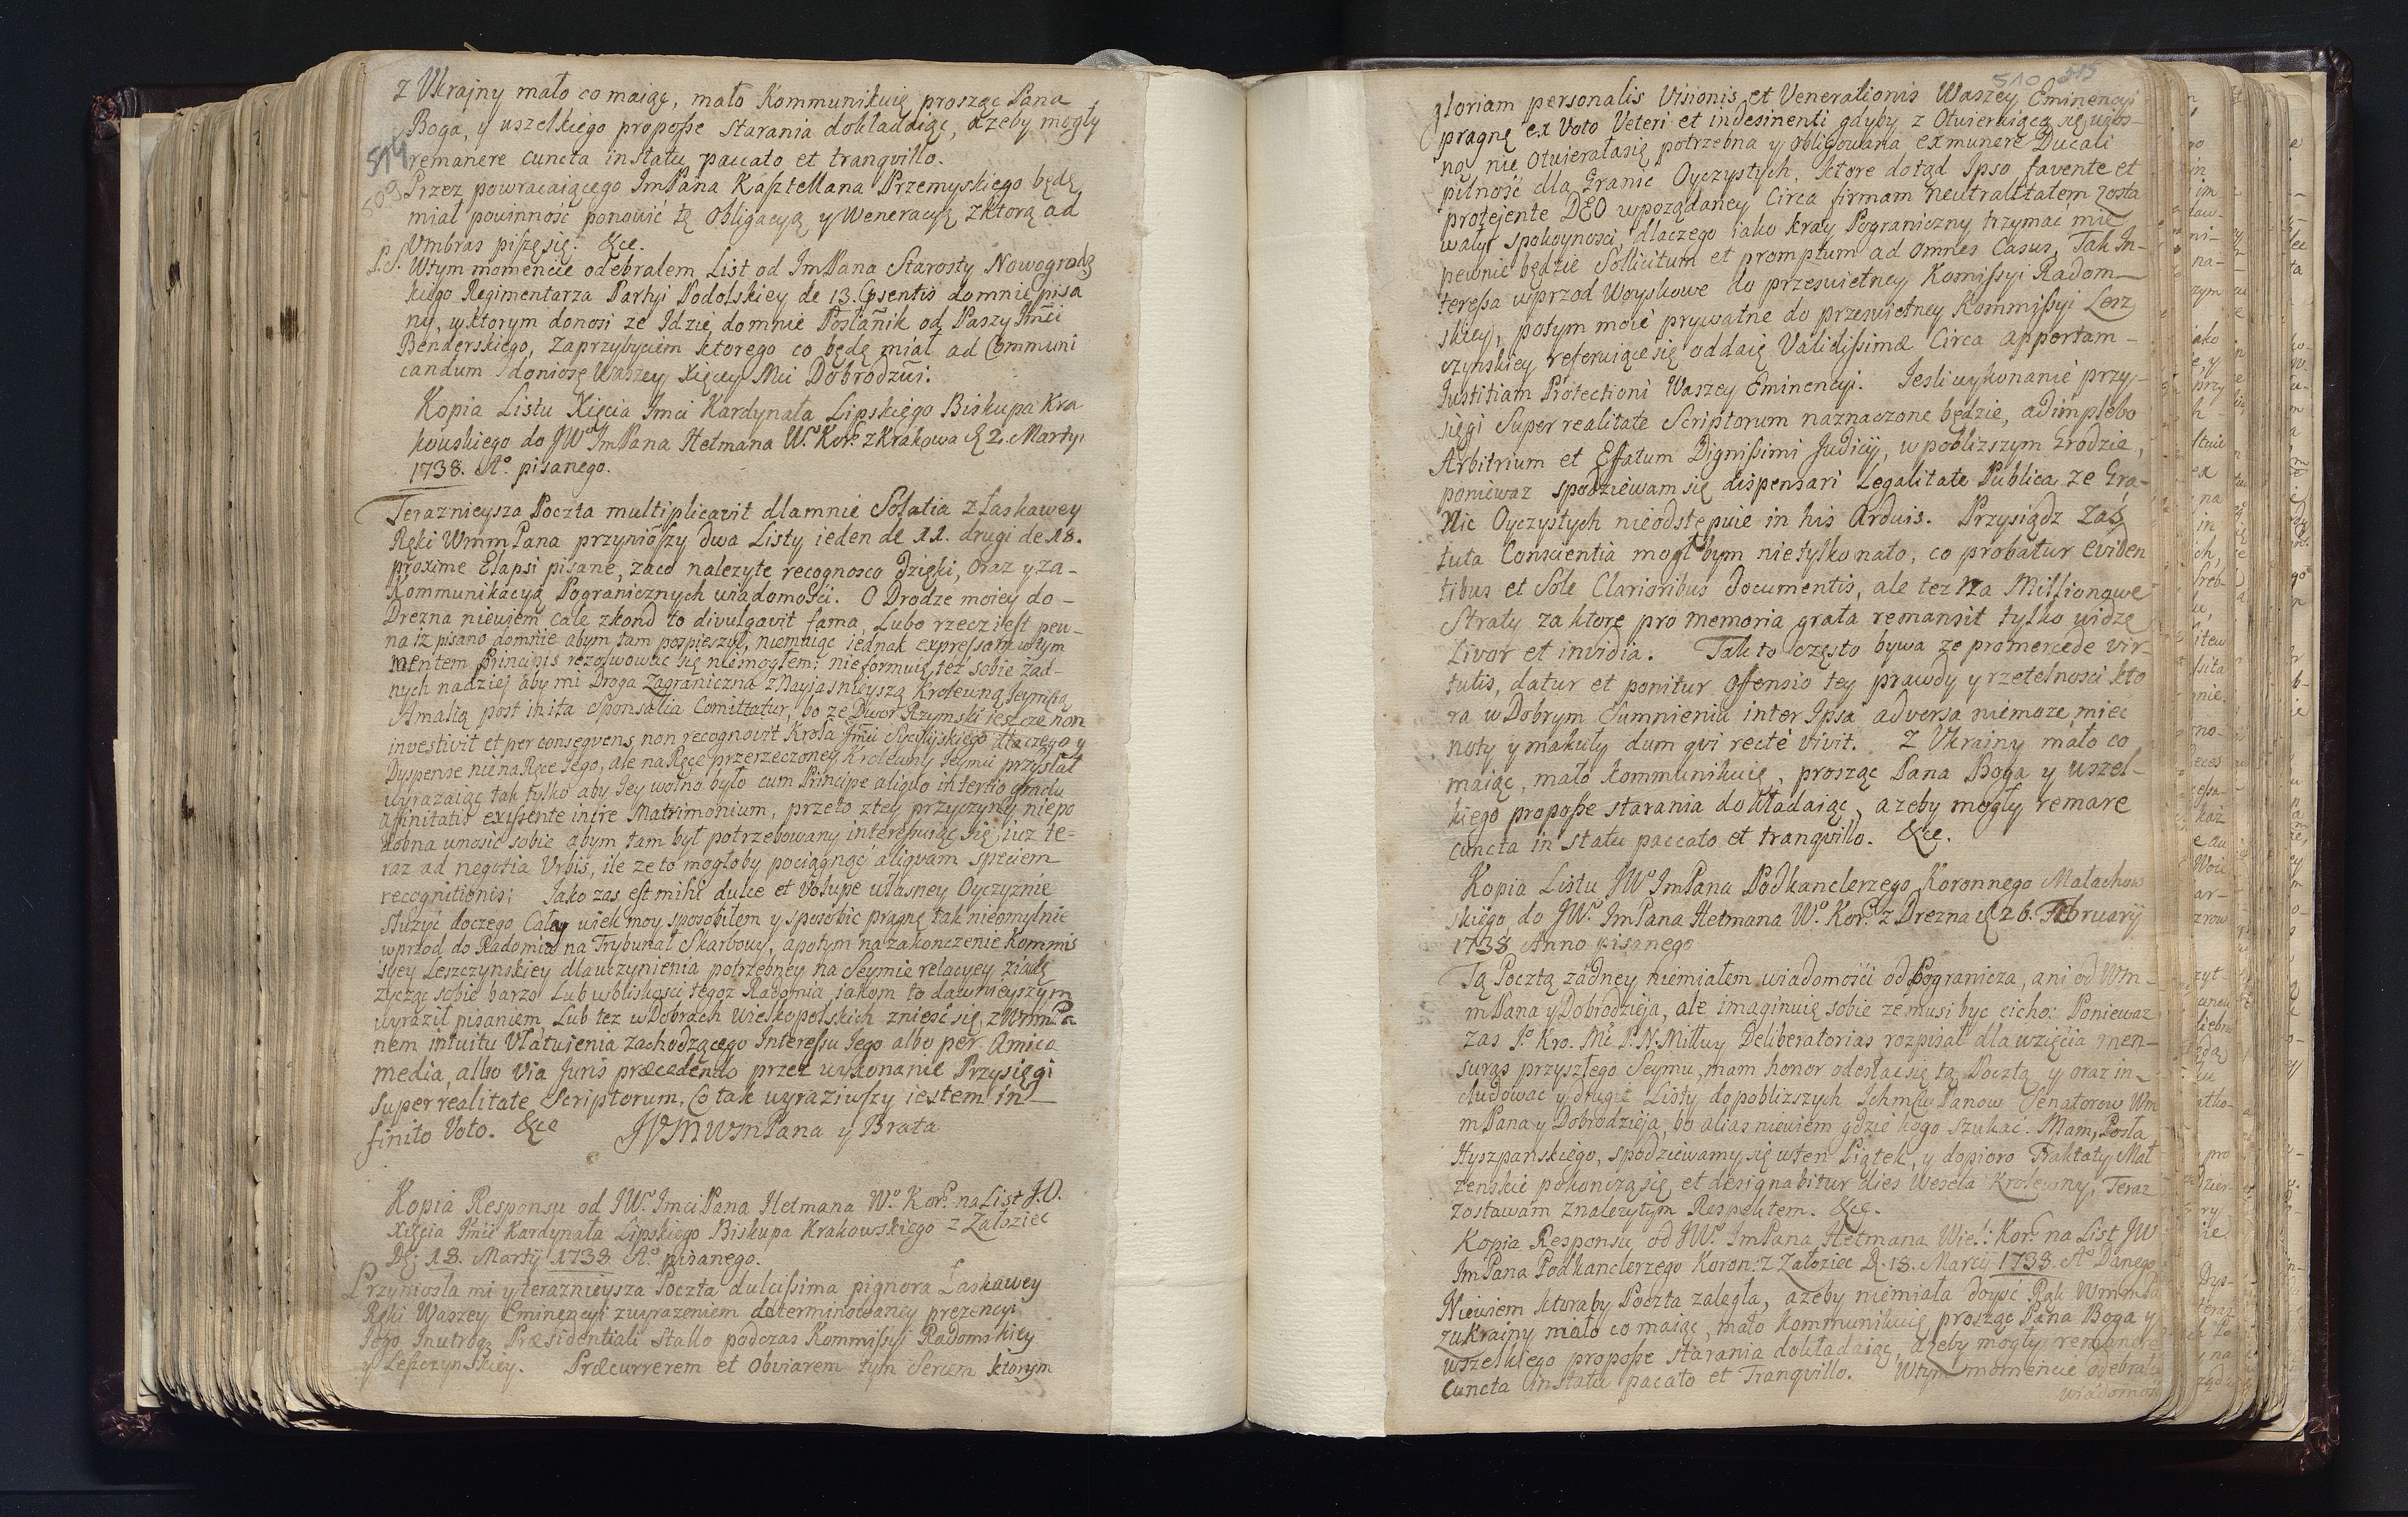 514
509
z Vkrajny mało co maiąc, mało Kommunikuię prosząc Pana
Boga, y uszelkiego proposse starania dokładaiąc, azeby mogły
remanere cuncta in statu paccato et tranqvillo.
Przez powracaiącego ImPana Kasztellana Przemyskiego będę
miał powinność ponowić tę obligacyą y Weneracyą z ktorą ad
Vmbras piszę się. &ce.
P.S. Wtym momencie odebrałem List od ImPana Starosty Nowogrodz
kiego Regimentarza Partyi Podolskiey de 13. Cpsentis do mnie pisa
ny, w ktorym donosi ze Idzie do mnie Posłañik od Paszy Jmci
Benderskiego, Zaprzybyciem ktorego co będę miał ad Communi
candum doniosę Waszey Xięcey Mci Dobrodzŭi.
Kopia Listu Xięcia Jmci Kardynała Lipskiego Biskupa Kra
kowskiego do JWo ImPana Hetmana Wo Kor. z Krakowa d 2. Martyi
1738. Ao. pisanego.
Teraznieysza Poczta multiplicavit dlamnie Solatia z łaskawey
Ręki WmmPana przyniószy dwa Listy ieden de 11. drugi de 18.
proxime Elapsi pisane, zaco nalezyte recognosco dzięki, oraz y za-
Kommunikacyą Pogranicznych wiadomości. O Drodze moiey do-
Drezna niewiem cale zkond to divulgavit fama, Lubo rzecz iest pew-
na iz pisano domnie abym tam pospieszył, niemaiąc iednak expressam wtym
mentem Principis rezolwować się niemogłem; nieformuię tez sobie zad-
nych nadziei aby mi Droga Zagraniczna z Nayiasnieyszą Krolewną Jeymcią
Amalią post inita Sponsalia Comittatur, bo ze Dwor Rzymski ieszcze non
investivit et per conseqvens non recognovit Krola Jmci Sycyliyskiego dlaczego y
Dyspense nie na Ręce Jego, ale na Ręce przerzeczoney Krolewny Jeymci przysłał
wyrazaiąc tak tylko aby Jey wolno było cum Principe aliqvo in tertio gradu
affinitatis existente inire Matrimonium, przeto z tey przyczyny niepo
dobna wnosić sobie abym tam był potrzebowany interessuiąc się iuz te=
raz ad negotia Vrbis, ile ze to mogłoby pociągnąć aliqvam speciem
recognitionis; Jako zas est mihi dulce et Volupe własney Oyczyznie
słuzyć doczego Cały wiek moy sposobiłem y sposobic pragnę tak nieomylnie
wprzod do Radomia na Trybunał Skarbowy, a potym na zakonczenie Kommis
syey Leszczynskiey dla uczynienia potrzebney na Seymie relacyey ziadę
zycząc sobie barzo Lub w bliskosci tegoz Radomia iakom to dawnieyszym
wyraził pisaniem, Lub tez w Dobrach wielkopolskich zniesć się z WmmPa
nem intuitu Vłatwienia zachodzącego Interessu Jego albo per Amica
media, albo via Juris præcedendo przez wykonanie Przysięgi
super realitate Scriptorum. Co tak wyraziwszy iestem in-
finito Voto. &ce JVMWmPana y Brata
Kopia Responsu od JWo ImciPana Hetmana Wo Kor. na List J.O.
Xięcia Jmci Kardynała Lipskiego Biskupa Krakowskiego z Załoziec
D: 18. Martij 1738 Ao. pisanego.
Przyniosła mi y teraznieysza Poczta dulcissima pignora Łaskawey
Ręki Waszey Eminencyi z wyrazeniem determinowaney prezencyi
Jego Inutroq Præsidentiali Stallo podczas Kommissyi Radomskiey
y Leszczynskiey. Præcurrerem et obviarem tym Sercem ktorym
510 515
gloriam personalis Visionis et Venerationis Waszey Eminencyi
pragnę ex Voto Veteri et indesinenti gdyby z Otwieraiącą się wios-
ną nie Otwierałasię potrzebna y obligowana ex munere Ducali
pilność dla Granic Oyczystych, ktore dotąd Ipso favente et
protejente DEO w poządaney Circa firmam neutralitatem zosta
wały spokoynosci, dlaczego iako kray Pograniczny trzymać mie
pewnie będzie Sollicitum et promptum ad omnes Casus, Tak In-
teressa wprzod Woyskowe do przeswietney Komissyi Radom-
skiey, potym moie prywatne do przeswietney Kommissyi Lesz
czynskiey referuiące się oddaię Validissimæ Circa apportam-
Justitiam Protectioni Waszey Eminencyi. Jesli wykonanie przy-
sięgi Super realitate Scriptorum naznaczone będzie, adimplebo
Arbitrium et Effatum Dignissimi Judicij, w poblizszym Grodzie,
poniewaz spodziewam się dispensari Legalitate Publica, ze Gra-
nic Oyczystych nieodstępuie in his Arduis. Przysiądz Zaś
tuta Conscientia mogłbym nie tylko na to, co probatur eviden
tibus et Sole Clarioribus documentis, ale tez na Millionowe
Straty za ktore pro memoria grata remansit tylko widzę
Livor et invidia. Tak to często bywa ze pro mercede vir-
tutis, datur et ponitur offensio tey prawdy y rzetelnosci kto
ra w Dobrym Sumnieniu inter Ipsa adversa niemoze miec
noty y makuły dum qvi recté vivit. Z Vkrainy mało co
maiąc, mało kommunikuię, prosząc Pana Boga y uszel-
kiego proposse starania dokładaiąc, azeby mogły remare
cuncta in statu paccato et tranqvillo. &ce.
Kopia Listu JWo ImPana Podkanclerzego Koronnego Małachow
skiego do JWo ImPana Hetmana Wo Kor. z Drezna d 26. Februarij
1738 Anno pisanego
Tą Pocztą zadney niemiałem wiadomości od Pogranicza, ani od Wm-
mPana y Dobrodzieja, ale imaginuię sobie ze musi byc cicho: Poniewaz
zas Jo Kro. Mć P. N. Miłłwy Deliberatorias rozpisał dla wzięcia men-
suras przyszłego Seymu, mam honor odesłac się tą Pocztą y oraz in-
cludować y drugie Listy do poblizszych Ichmciw Panow Senatorow Wm
mPana y Dobrodzieja, bo alias niewiem gdzie kogo szukać. Mamy Posła
Hyszpańskiego, spodziewamy się w ten Piątek, y dopioro Traktaty Mał
zenskie pokonczą się, et designabitur dies Wesela Krolewny, Teraz
zostawam z nalezytym Respektem. &ce.
Kopia Responsu od JWo ImPana Hetmana Wiel: Kor. na List JW
ImPana Podkanclerzego Koron: z Załoziec D. 18. Marcij 1738. Ao Danego
Niewiem ktoraby Poczta zaległa, azeby niemiała doysć Rąk WmmPa
z Vkrainy mało co maiąc, mało kommunikuię prosząc Pana Boga y
wszelkiego proposse starania dokładaiąc, azeby mogły remanere
cuncta in statu pacato et Tranqvillo. Wtym momencie odebrałem
wiadomość